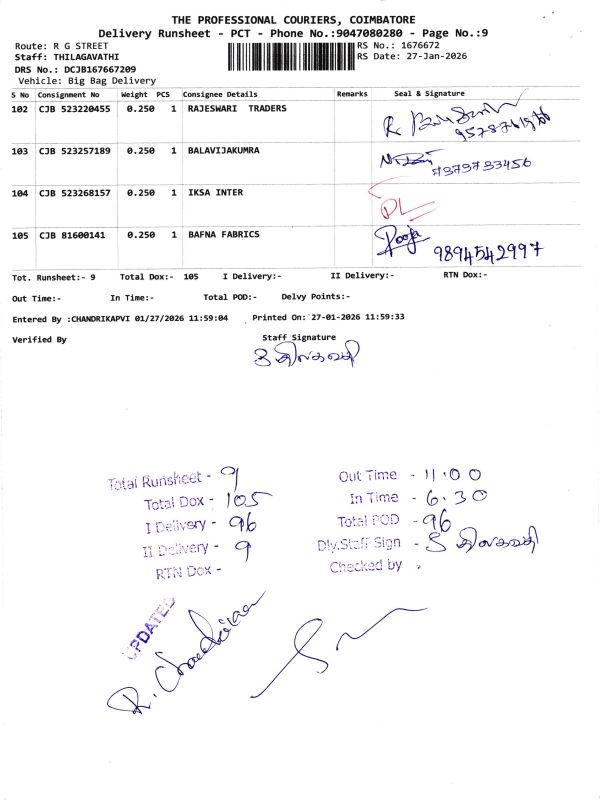 THE PROFESSIONAL COURIERS, COIMBATORE
Delivery Runsheet - PCT - Phone No.:9047080280 - Page No.:9
Route: R G STREET RS No.: 1676672
Staff: THILAGAVATHI RS Date: 27-Jan-2026
DRS No.: DCJB167667209
Vehicle: Big Bag Delivery
S No Consignment No Weight PCS Consignee Details Remarks Seal & Signature
102 CJB 523220455 0.250 1 RAJESWARI TRADERS
103 CJB 523257189 0.250 1 BALAVIJAKUMRA 7373733456
104 CJB 523268157 0.250 1 IKSA INTER DL
105 CJB 81600141 0.250 1 BAFNA FABRICS Pooja 9894542997
Tot. Runsheet:- 9 Total Dox:- 105 I Delivery:- II Delivery:- RTN Dox:-
Out Time:- In Time:- Total POD:- Delvy Points:-
Entered By :CHANDRIKAPVI 01/27/2026 11:59:04 Printed On: 27-01-2026 11:59:33
Verified By Staff Signature
திலகவதி
Total Runsheet - 9 Out Time - 11.00
Total Dox - 105 In Time - 6.30
I Delivery - 96 Total POD - 96
II Delivery - 9 Dly.Staff Sign - S திலகவதி
RTN Dox - Checked by
UPDATED